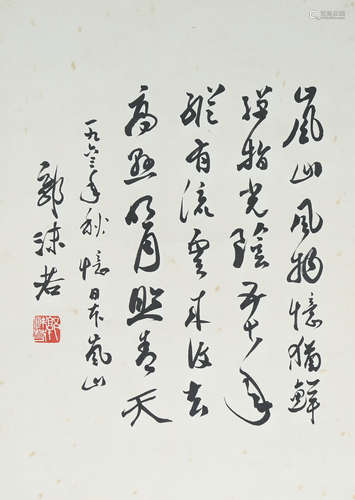 嵐山風物憶猶鮮
彈指光陰五十年
縱有流雲來復去
高懸明月照青天
一九六三年秋憶日本嵐山
郭沫若